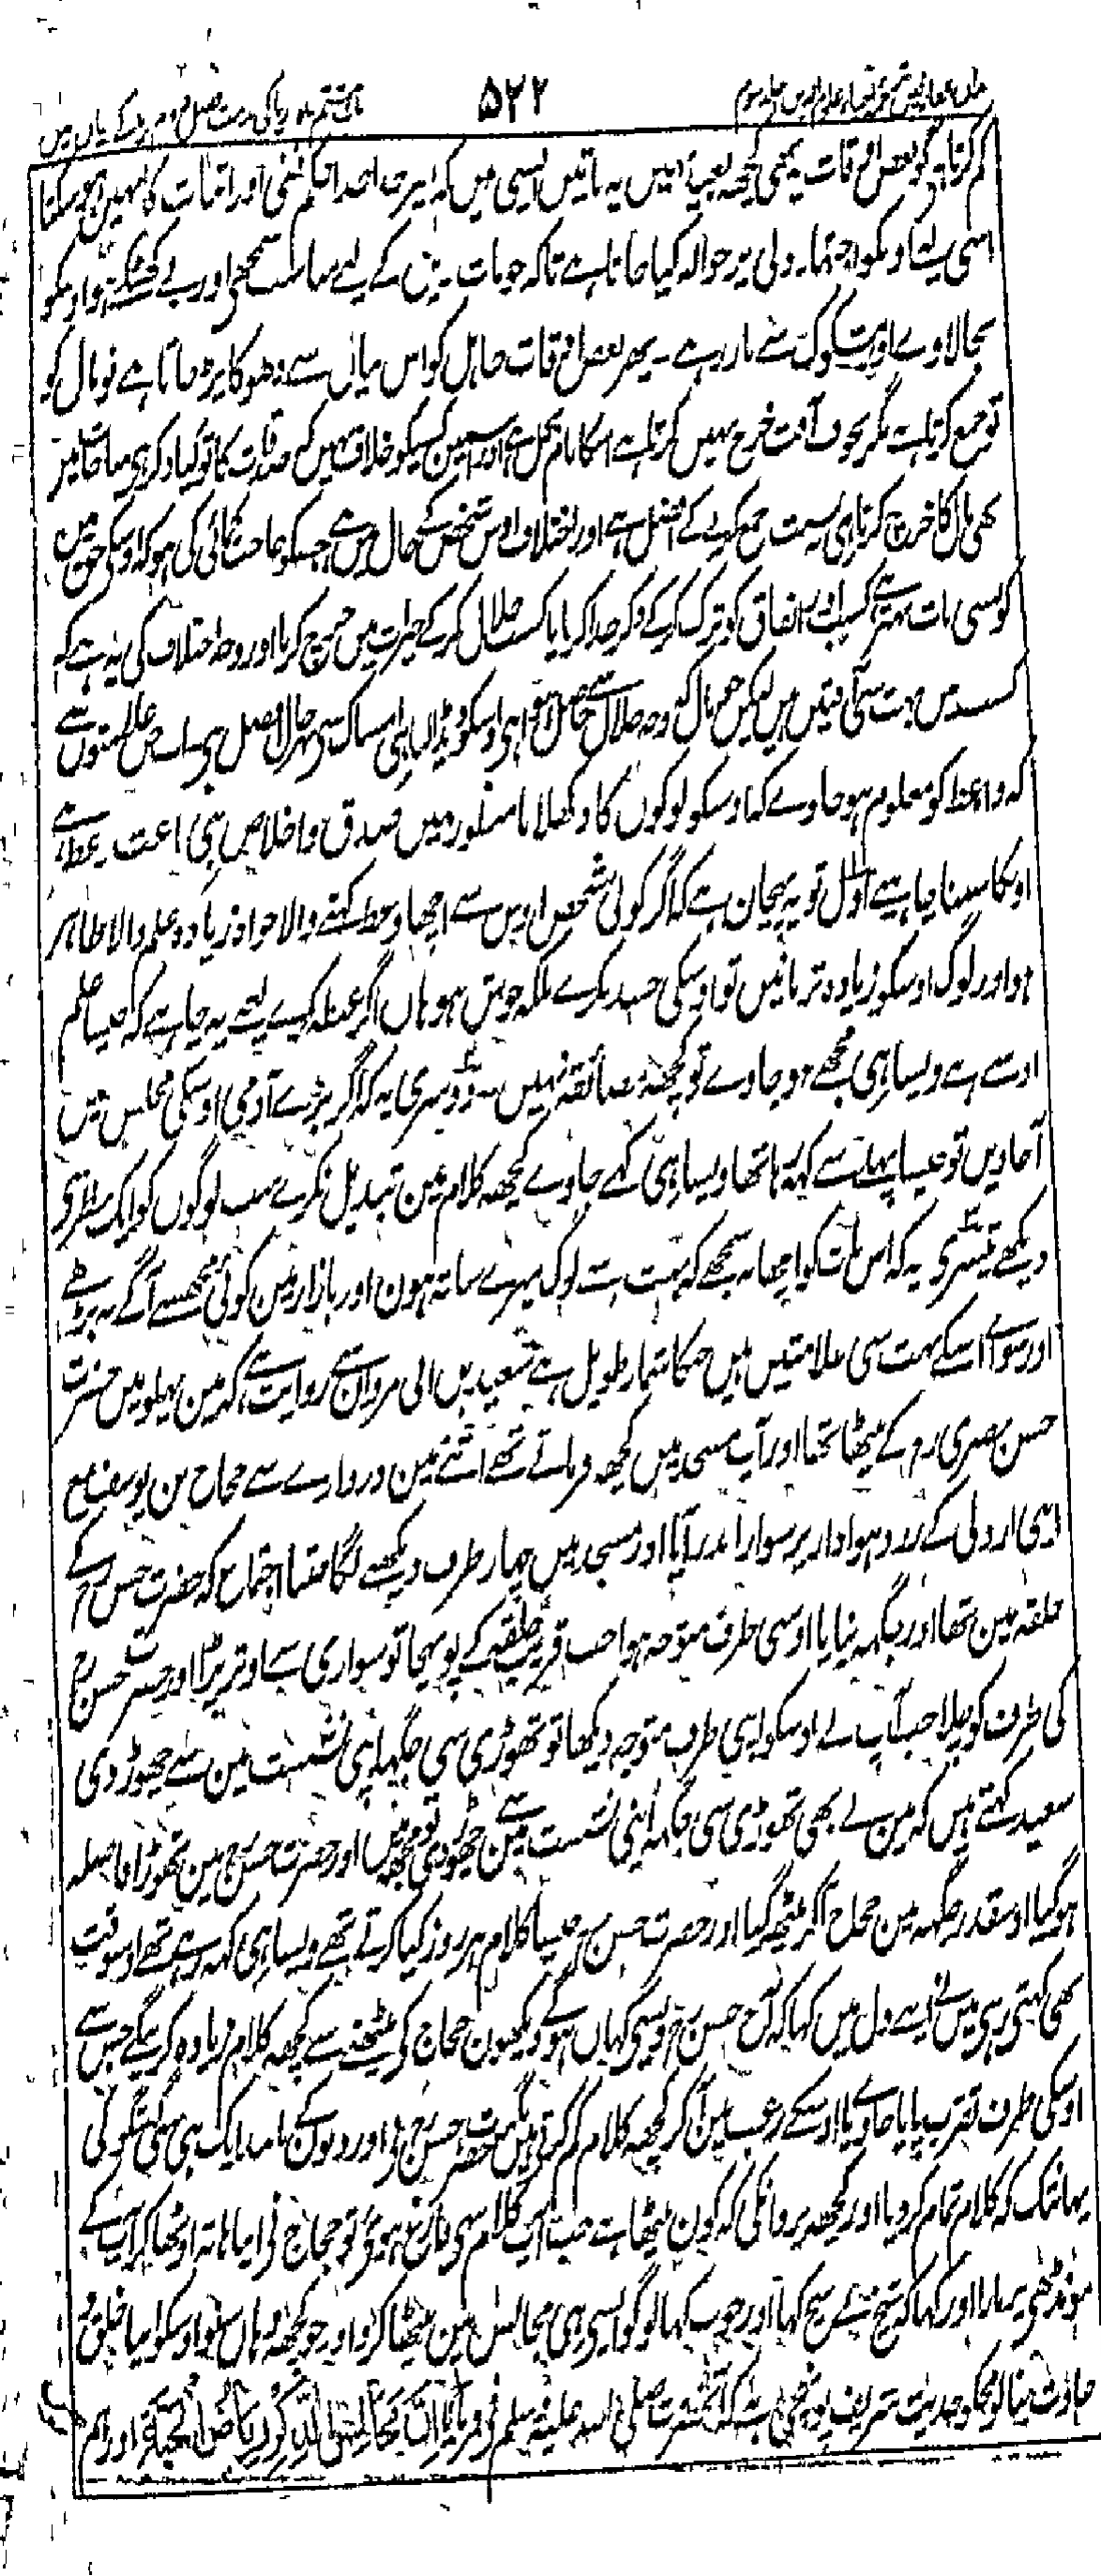 ۵۲۲
کم کرتا ہے گو بعض اوقات یہ بھی کچھ بعید نہیں یہ باتیں ایسی ہیں کہ ان پر جدا جدا حکم نفی اور اثبات کا نہیں ہو سکتا
اسی لیے اوسکو اجتہاد دلی پر حوالہ کیا جاتا ہے تاکہ جو بات دین کے لیے مناسب سمجھے اور بے کھٹکے ہو اوسکو
بجا لاوے اور شکوک سے باز رہے ۔ پھر بعض اوقات جاہل کو اس بیان سے دھوکا پڑ جاتا ہے تو مال کو
تو جمع کرتا ہے مگر بخوف آفت خرچ نہیں کرتا ہے اسکا نام بخل ہے اور اسمین کسیکو خلاف نہیں کہ صدقات کا تو کیا ذکر ہی مباحات پر
بھی مال کا خرچ کرنا ہی نسبت جمع کرنے کے افضل ہے اور اختلاف اوس شخص کے حال میں ہے جسکو حاجت کمائی کی ہو کہ اوسکی حق میں
کونسی بات بہتر ہے کسب اور انفاق کو ترک کرکے ذکر خدا کرنا یا کسب حلال کرکے خیرات میں خرچ کرنا اور وجہ اختلاف کی یہ ہے کہ
کسب میں بہت سی آفتیں ہیں لیکن جو مال کہ وجہ حلال سے حاصل ہوا ہی اوسکو دے ڈالنا ہی امساک سے بہر حال افضل ہی
کہ واعظ کو معلوم ہو جاوے کہ اوسکو لوگوں کا دکھلانا منظور نہیں صدق و اخلاص ہی باعث وعظ ہے
اوسکا سننا چاہیے اول تو یہ پہچان ہے کہ اگر کوئی شخص اوس سے اچھا وعظ کہنے والا خواہ زیادہ علم والا ظاہر
ہو اور لوگ اوسکو زیادہ تر مانیں تو اوسکی حسد نکرے بلکہ خوش ہو ہاں اگر غبطہ کرے یعنے یہ چاہے کہ جیسا علم
اوسے ہے ویسا ہی مجھے ہو جاوے تو کچھ مضائقہ نہیں ۔ دوسری یہ کہ اگر بڑے آدمی اوسکی مجلس میں
آجاویں تو جیسا پہلے سے کہہ رہا تھا ویسا ہی کہے جاوے کچھ کلام مین تبدیل نکرے سب لوگوں کو ایک نظر سے
دیکھے تیسری یہ کہ اس بات کو اچھا نہ سمجھے کہ بہت سے لوگ میرے ساتھ ہون اور بازار مین کوئی مجھسے آگے نہ بڑھے
اور سواے اسکے بہت سی علامتیں ہیں جنکا شمار طویل ہے سعید بن ابی مروان سے روایت ہے کہ مین پہلو میں حضرت
حسن بصری رح کے بیٹھا تھا اور آپ مسجد میں کچھ فرماتے تھے اتنے مین دروازے سے حجاج بن یوسف مع
اپنی اردلی کے زرد ہوادار پر سوار اندر آیا اور مسجد میں چار طرف دیکھنے لگا جتنا اجتماع کہ حضرت حسن رح کے
حلقہ مین تھا اور جگہہ نپایا اوسی طرف متوجہ ہوا جب قریب حلقہ کے پونہچا تو سواری سے اوتر پڑا اور حضرت حسن رح
کی طرف کو چلا جب آپ نے اوسکو اپنی طرف متوجہ دیکھا تو تھوڑی سی جگہہ اپنی نشست مین سے چھوڑ دی
سعید کہتے ہیں کہ مین نے بھی تھوڑی سی جگہہ اپنی نشست مین سے چھوڑ دی تو مجھ میں اور حضرت حسن رح مین تھوڑا فاصلہ
ہوگیا اوسقدر جگہہ مین حجاج آکر بیٹھ گیا اور حضرت حسن رح جیسا کلام ہر روز کیا کرتے تھے ویسا ہی کہہ رہے تھے اوسوقت
بھی کہتے رہے میں نے اپنے دل میں کہا کہ آج حسن رح دیکھون حجاج کے بیٹھنے سے کچھ کلام زیادہ کرینگے جس سے
اوسکی طرف تقرب پایا جاوے یا اوسکے رعب مین آکر کچھ کلام کم کرتے ہیں مگر حضرت حسن رح نے اور دنوں کے مانند ایک ہی سی گفتگو کی
یہانتک کہ کلام تمام کر دیا اور کچھ پروا نکی کہ کون بیٹھا ہے جب آپ کلام سے فارغ ہوئے تو حجاج نے اپنا ہاتھ اوٹھا کر آپ کے
مونڈھے پر مارا اور کہا کہ شیخ نے سچ کہا اور خوب کہا لوگو ایسی ہی مجالس مین بیٹھا کرو اور جو کچھ یہاں سنو اوسکو اپنا خلق و
عادت بنا لو مجکو حدیث شریف پہونچی ہے کہ آنحضرت صلی اللہ علیہ وسلم نے فرمایا اِنَّ مَجَالِسَ الذِّکْرِ رِیَاضُ الْجَنَّةِ اور ہم